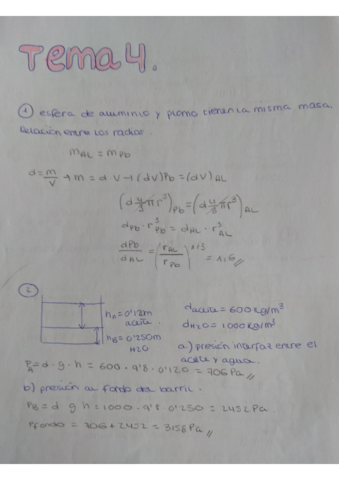 Tema 4.
1 esfera de aluminio y plomo tienen la misma masa
Relación entre los radios.
m_AL = m_Pb
d = m/V → m = d V → (dV)Pb = (dV)AL
(d 4/3 π r³)Pb = (d 4/3 π r³)AL
dPb · r³Pb = dAL · r³AL
dPb/dAL = (rAL/rPb)^1/3 = 1'6 //
2
hA = 0'12m
aceite
hB = 0'250m
H2O
daceite = 600 kg/m³
dH2O = 1000 kg/m³
a) presión interfaz entre el
aceite y agua.
PA = d · g · h = 600 · 9'8 · 0'120 = 706 Pa //
b) presión al fondo del barril.
PB = d · g · h = 1000 · 9'8 · 0'250 = 2452 Pa
Pfondo = 706 + 2452 = 3158 Pa //